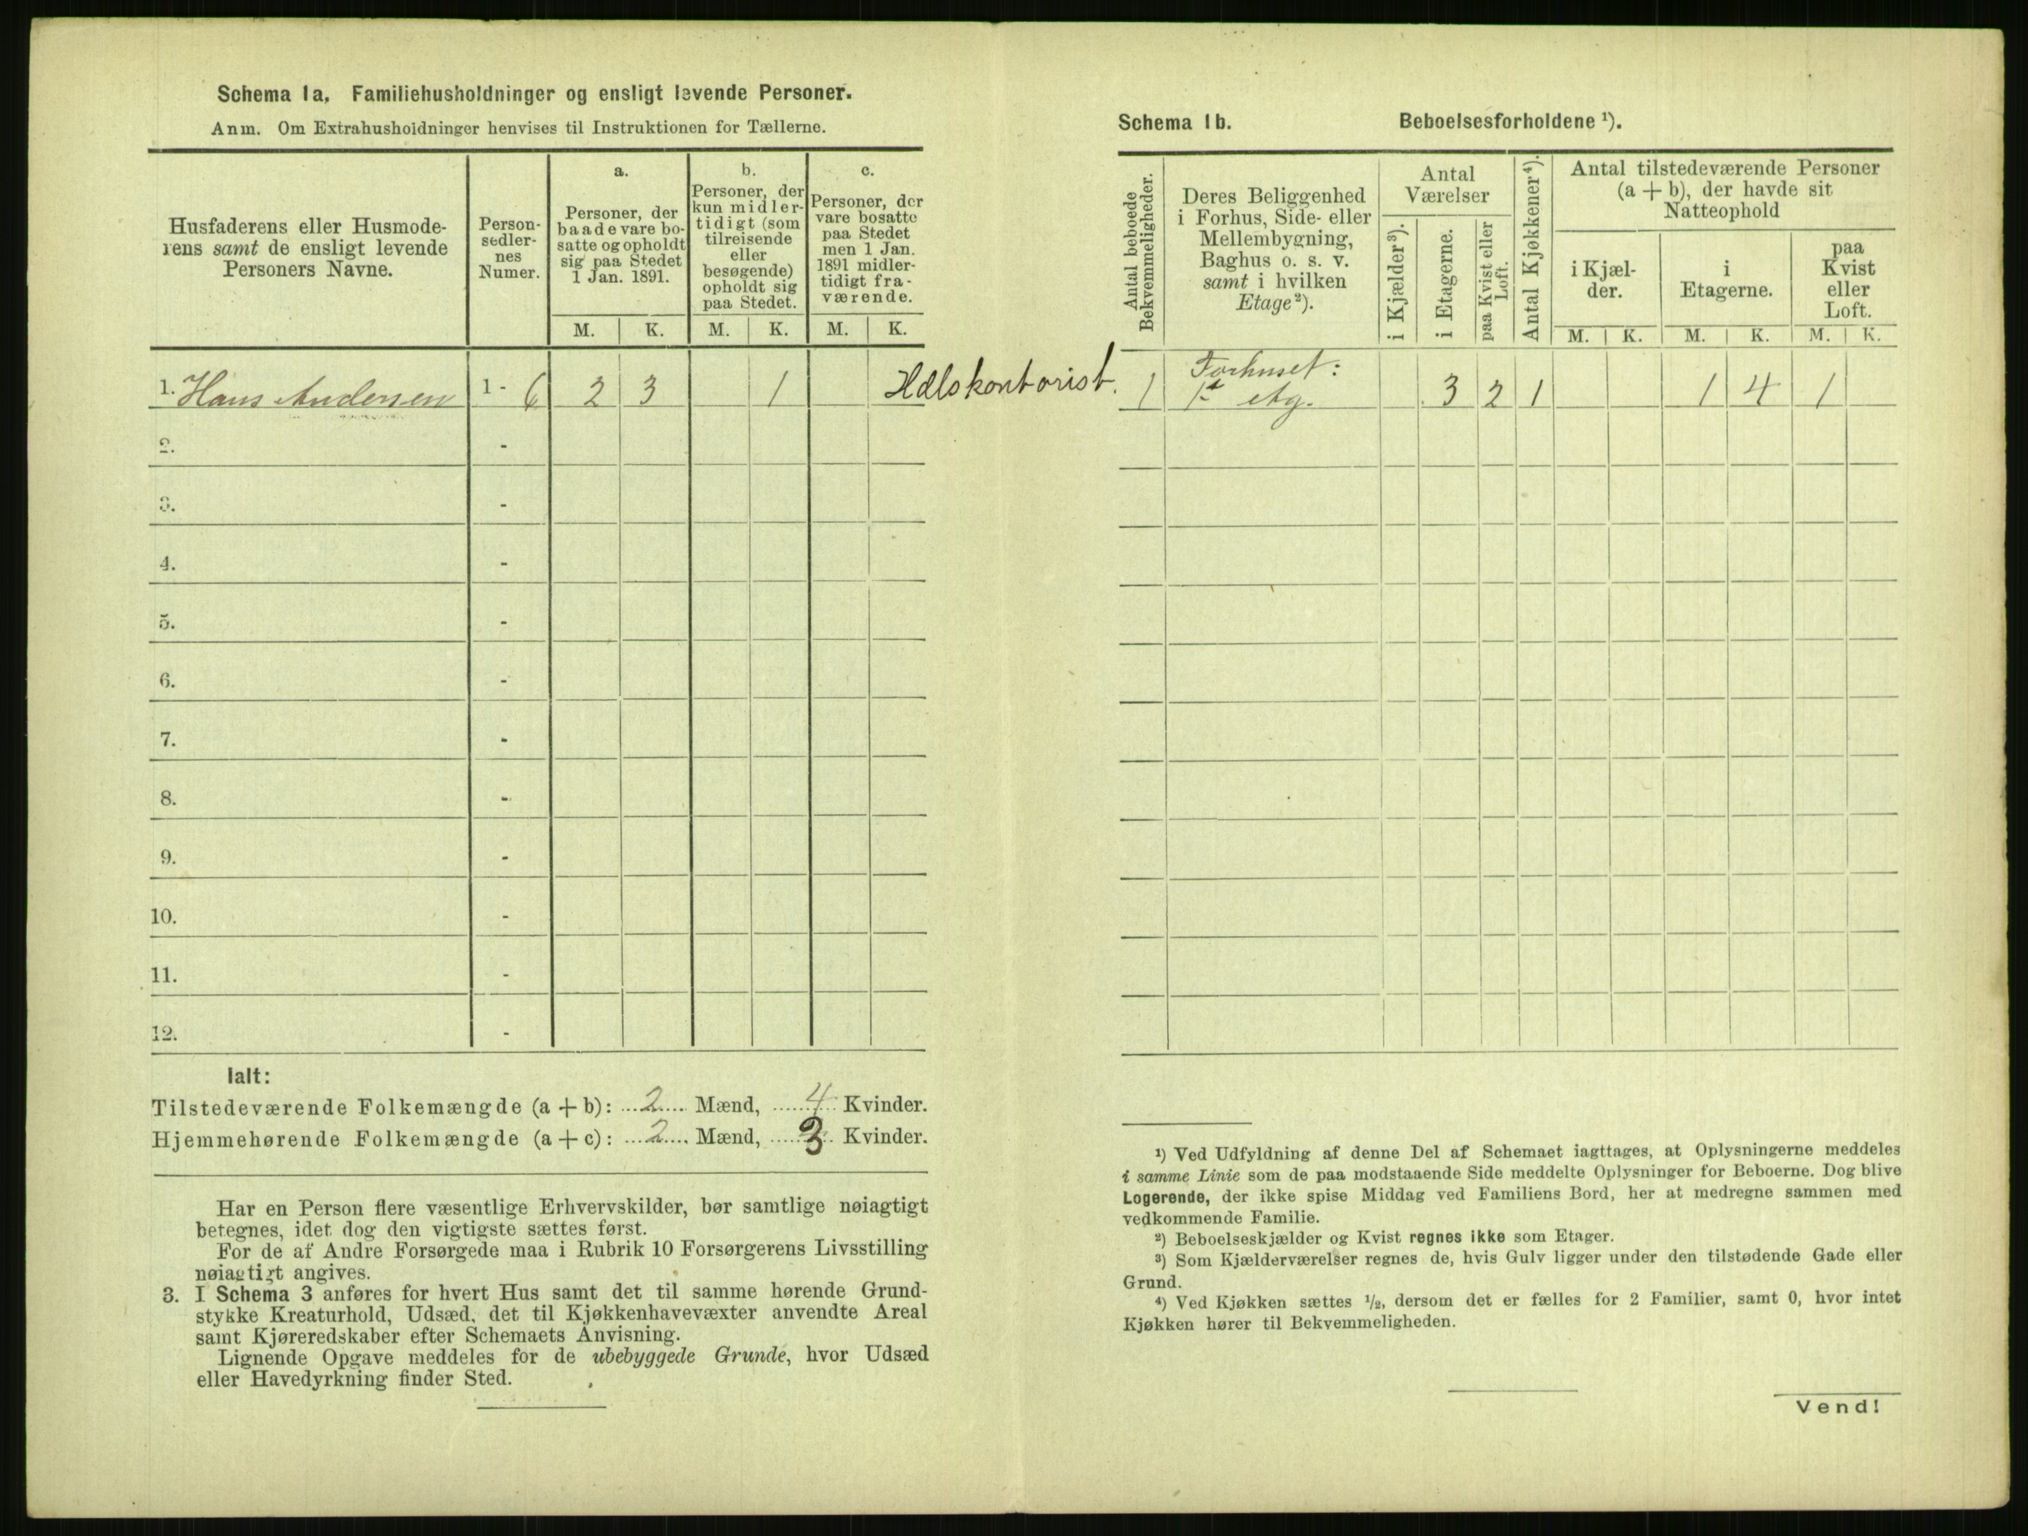 Schema 1a, Familiehusholdninger og ensligt levende Personer.
Anm. Om Extrahusholdninger henvises til Instruktionen for Tællerne.
Husfaderens eller Husmode-
rens samt de ensligt levende
Personers Navne.
Person-
sedler-
nes
Numer.
a.
Personer, der
baade vare bo-
satte og opholdt
sig paa Stedet
1 Jan. 1891.
b.
Personer, der
kun midler-
tidigt (som
tilreisende
eller
besøgende)
opholdt sig
paa Stedet.
c.
Personer, der
vare bosatte
paa Stedet
men 1 Jan.
1891 midler-
tidigt fra-
værende.
M. K. M. K. M. K.
1. Hans Andersen 1 - 6 2 3 1 Hdlskontorist.
2. -
3. -
4. -
5. -
6. -
7. -
8. -
9. -
10. -
11. -
12. -
Ialt:
Tilstedeværende Folkemængde (a + b): 2 Mænd, 4 Kvinder.
Hjemmehørende Folkemængde (a + c): 2 Mænd, 3 Kvinder.
Har en Person flere væsentlige Erhvervskilder, bør samtlige nøiagtigt
betegnes, idet dog den vigtigste sættes først.
For de af Andre Forsørgede maa i Rubrik 10 Forsørgerens Livsstilling
nøiagtigt angives.
3. I Schema 3 anføres for hvert Hus samt det til samme hørende Grund-
stykke Kreaturhold, Udsæd, det til Kjøkkenhavevæxter anvendte Areal
samt Kjøreredskaber efter Schemaets Anvisning.
Lignende Opgave meddeles for de ubebyggede Grunde, hvor Udsæd
eller Havedyrkning finder Sted.
Schema 1b. Beboelsesforholdene ¹).
Antal beboede
Bekvemmeligheder.
Deres Beliggenhed
i Forhus, Side- eller
Mellembygning,
Baghus o. s. v.
samt i hvilken
Etage ²).
Antal
Værelser
i Kjælder ³).
i Etagerne.
paa Kvist eller
Loft.
Antal Kjøkkener ⁴).
Antal tilstedeværende Personer
(a + b), der havde sit
Natteophold
i Kjæl-
der.
i
Etagerne.
paa
Kvist
eller
Loft.
M. K. M. K. M. K.
Forhuset:
1 1ste Etg. 3 2 1 1 4 1
¹) Ved Udfyldning af denne Del af Schemaet iagttages, at Oplysningerne meddeles
i samme Linie som de paa modstaaende Side meddelte Oplysninger for Beboerne. Dog blive
Logerende, der ikke spise Middag ved Familiens Bord, her at medregne sammen med
vedkommende Familie.
²) Beboelseskjælder og Kvist regnes ikke som Etager.
³) Som Kjælderværelser regnes de, hvis Gulv ligger under den tilstødende Gade eller
Grund.
⁴) Ved Kjøkken sættes ½, dersom det er fælles for 2 Familier, samt 0, hvor intet
Kjøkken hører til Bekvemmeligheden.
Vend!